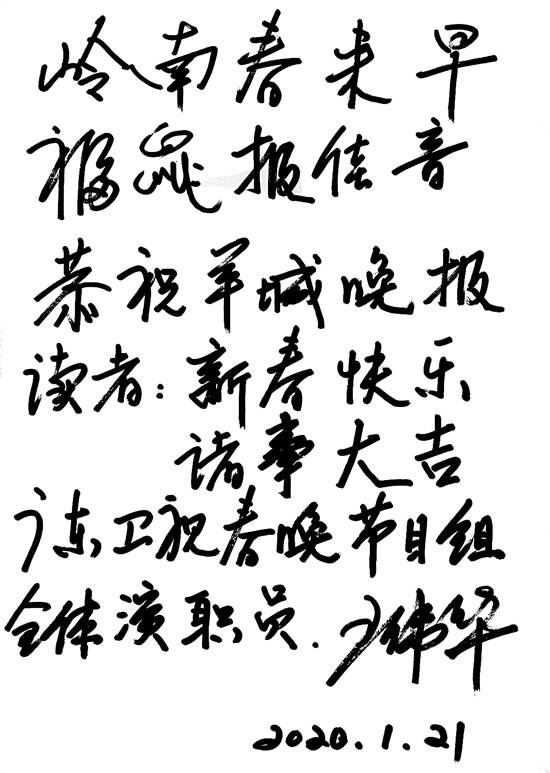 岭南春来早
福鼠报佳音
恭祝羊城晚报
读者：新春快乐
诸事大吉
广东卫视春晚节目组
全体演职员.
2020.1.21